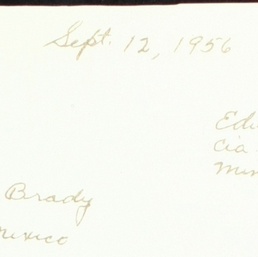 Sept. 12, 1956
Edu
Cia
Min
Brady
Mexico